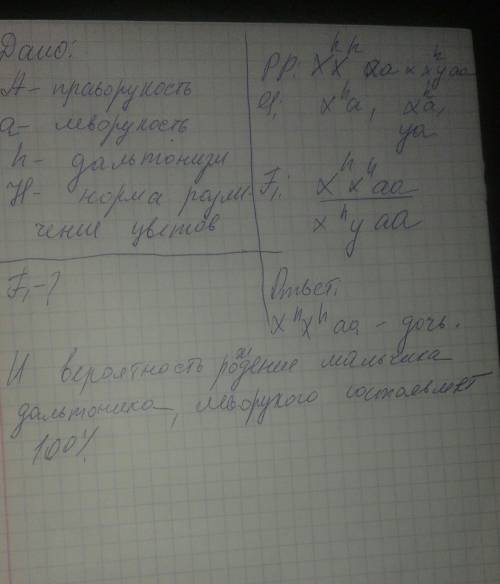 Дано:
А - праворукость
а - леворукость
h - дальтонизм
Н - норма разли-
чение цветов
F₁ - ?
PP: XʰXʰ aa × xʰy aa
G: xʰa, xʰa,
ya
F₁: xʰxʰ aa
xʰy aa
Ответ:
xʰxʰ aa - дочь.
И вероятность рождение мальчика
дальтоника, леворукого составляет
100%